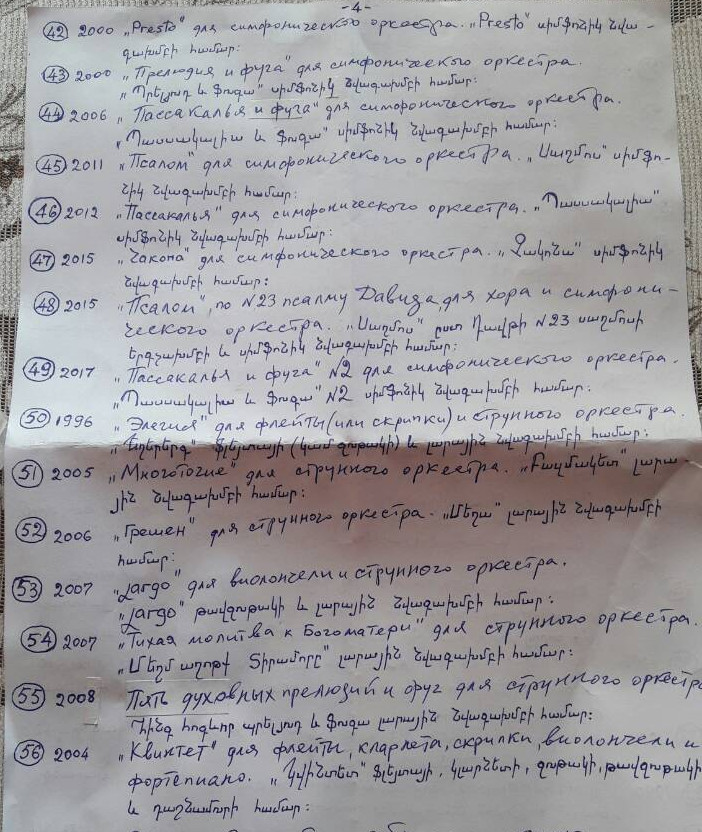 -4-
42 2000 „Presto" для симфонического оркестра. „Presto" սիմֆոնիկ նվա-
գախմբի համար:
43 2000 „Прелюдия и фуга" для симфонического оркестра.
„Պրելյուդ և ֆուգա" սիմֆոնիկ նվագախմբի համար:
44 2006 „Пассакалья и фуга" для симфонического оркестра.
„Պասսակալիա և ֆուգա" սիմֆոնիկ նվագախմբի համար:
45 2011 „Псалом" для симфонического оркестра. „Սաղմոս" սիմֆո-
նիկ նվագախմբի համար:
46 2012 „Пассакалья" для симфонического оркестра. „Պասսակալիա"
սիմֆոնիկ նվագախմբի համար:
47 2015 „Чакона" для симфонического оркестра. „Չակոնա" սիմֆոնիկ
նվագախմբի համար:
48 2015 „Псалом", по N23 псалму Давида, для хора и симфони-
ческого оркестра. „Սաղմոս" ըստ Դավթի N23 սաղմոսի
երգչախմբի և սիմֆոնիկ նվագախմբի համար:
49 2017 „Пассакалья и фуга" N2 для симфонического оркестра.
„Պասսակալիա և ֆուգա" N2 սիմֆոնիկ նվագախմբի համար:
50 1996 „Элегия" для флейты (или скрипки) и струнного оркестра.
„Եղերերգ" ֆլեյտայի (կամ ջութակի) և լարային նվագախմբի համար:
51 2005 „Многоточие" для струнного оркестра. „Բազմակետ" լարա-
յին նվագախմբի համար:
52 2006 „Грешен" для струнного оркестра. „Մեղա" լարային նվագախմբի
համար:
53 2007 „Largo" для виолончели и струнного оркестра.
„Largo" թավջութակի և լարային նվագախմբի համար:
54 2007 „Тихая молитва к Богоматери" для струнного оркестра.
„Մեղմ աղոթք Տիրամորը" լարային նվագախմբի համար:
55 2008 Пять духовных прелюдий и фуг для струнного оркестра
Հինգ հոգևոր պրելյուդ և ֆուգա լարային նվագախմբի համար:
56 2004 „Квинтет" для флейты, кларнета, скрипки, виолончели и
фортепиано. „Կվինտետ" ֆլեյտայի, կլարնետի, ջութակի, թավջութակի
և դաշնամուրի համար: